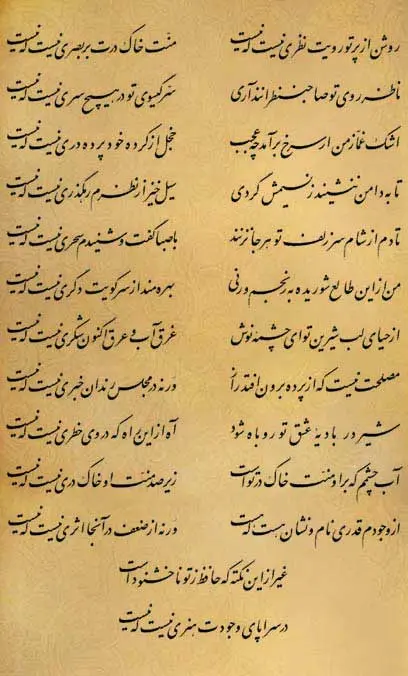 روشن از پرتو رویت نظری نیست که نیست منّت خاک درت بر بصری نیست که نیست
ناظر روی تو صاحب نظرانند آری سر گیسوی تو در هیچ سری نیست که نیست
اشک غمّاز من ار سرخ برآمد چه عجب خجل از کرده خود پرده دری نیست که نیست
تا به دامن ننشیند ز نسیمش گردی سیل خیز از نظرم رهگذری نیست که نیست
تا دم از شام سر زلف تو هر جا نزنند با صبا گفت و شنیدم سحری نیست که نیست
من از این طالع شوریده به رنجم ور نی بهره مند از سر کویت دگری نیست که نیست
از حیای لب شیرین تو ای چشمه نوش غرق آب و عرق اکنون شکری نیست که نیست
مصلحت نیست که از پرده برون افتد راز ور نه در مجلس رندان خبری نیست که نیست
شیر در بادیهٔ عشق تو روباه شود آه از این راه که در وی خطری نیست که نیست
آب چشمم که بر او منّت خاک در توست زیر صد منّت او خاک دری نیست که نیست
از وجودم قدری نام و نشان هست که هست ور نه از ضعف در آنجا اثری نیست که نیست
غیر از این نکته که حافظ ز تو ناخشنود است
در سراپای وجودت هنری نیست که نیست